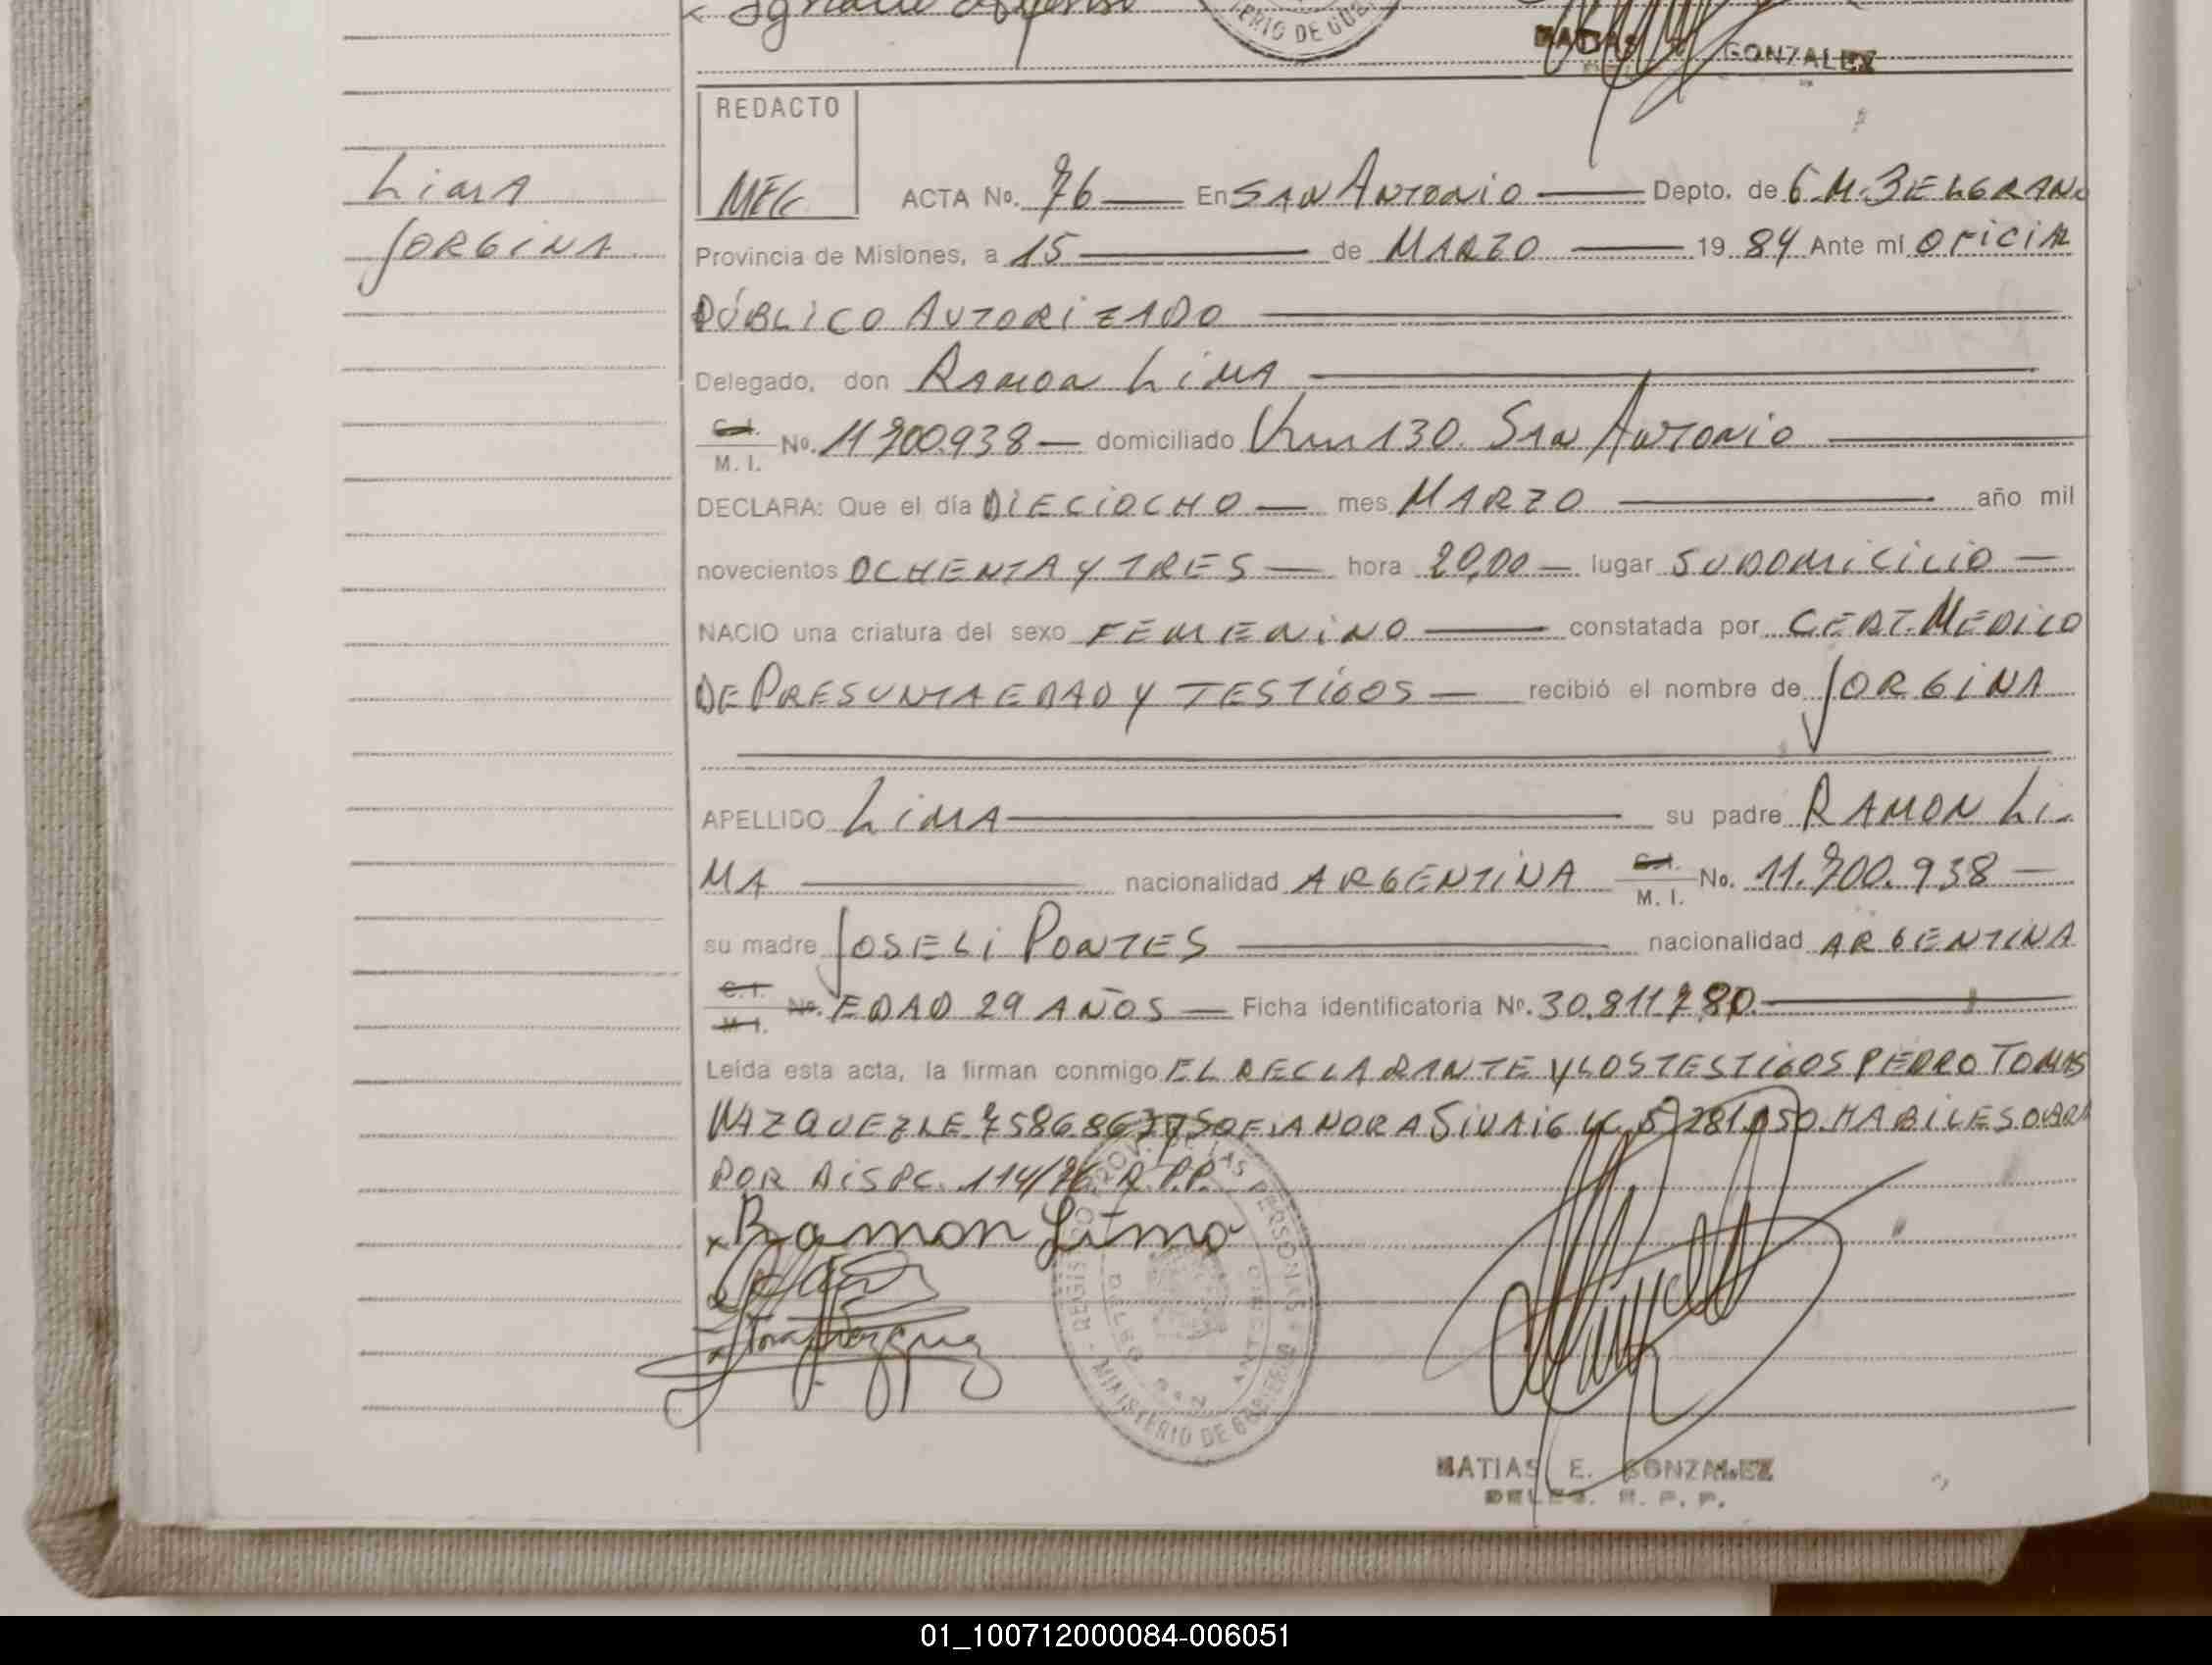 ERIO DE GUB
MATIAS E. GONZALEZ
REDACTO
MEG
Lima
Jorgina
ACTA No. 76 — En San Antonio — Depto. de G.M. Belgrano
Provincia de Misiones, a 15 — de Marzo — 19 84 Ante mi Oficial
Público Autorizado
Delegado, don Ramon Lima
C.I. M.I. No. 11700.938 — domiciliado Km 130. San Antonio
DECLARA: Que el día dieciocho — mes Marzo — año mil
novecientos ochenta y tres — hora 20,00 — lugar su domicilio —
NACIO una criatura del sexo femenino — constatada por Cert. Medico
de Presunta edad y testigos — recibió el nombre de Jorgina
APELLIDO Lima — su padre Ramon Li-
ma — nacionalidad Argentina C.I. M.I. No. 11.700.938 —
su madre Joseli Pontes — nacionalidad Argentina
C.I. M.I. No. Edad 29 años — Ficha identificatoria Nº. 30.811.780.
Leída esta acta, la firman conmigo el declarante y los testigos Pedro Tomas
Vazquez LE. 7586.867 y Sofia Nora LC. 5.281.050. Habiles
por Dispc. 114/76 R.P.P.
x Ramon Lima
REGISTRO PROV. DE LAS PERSONAS - MINISTERIO DE GOBIERNO
MATIAS E. GONZALEZ
DELEG. R. P. P.
01_100712000084-006051